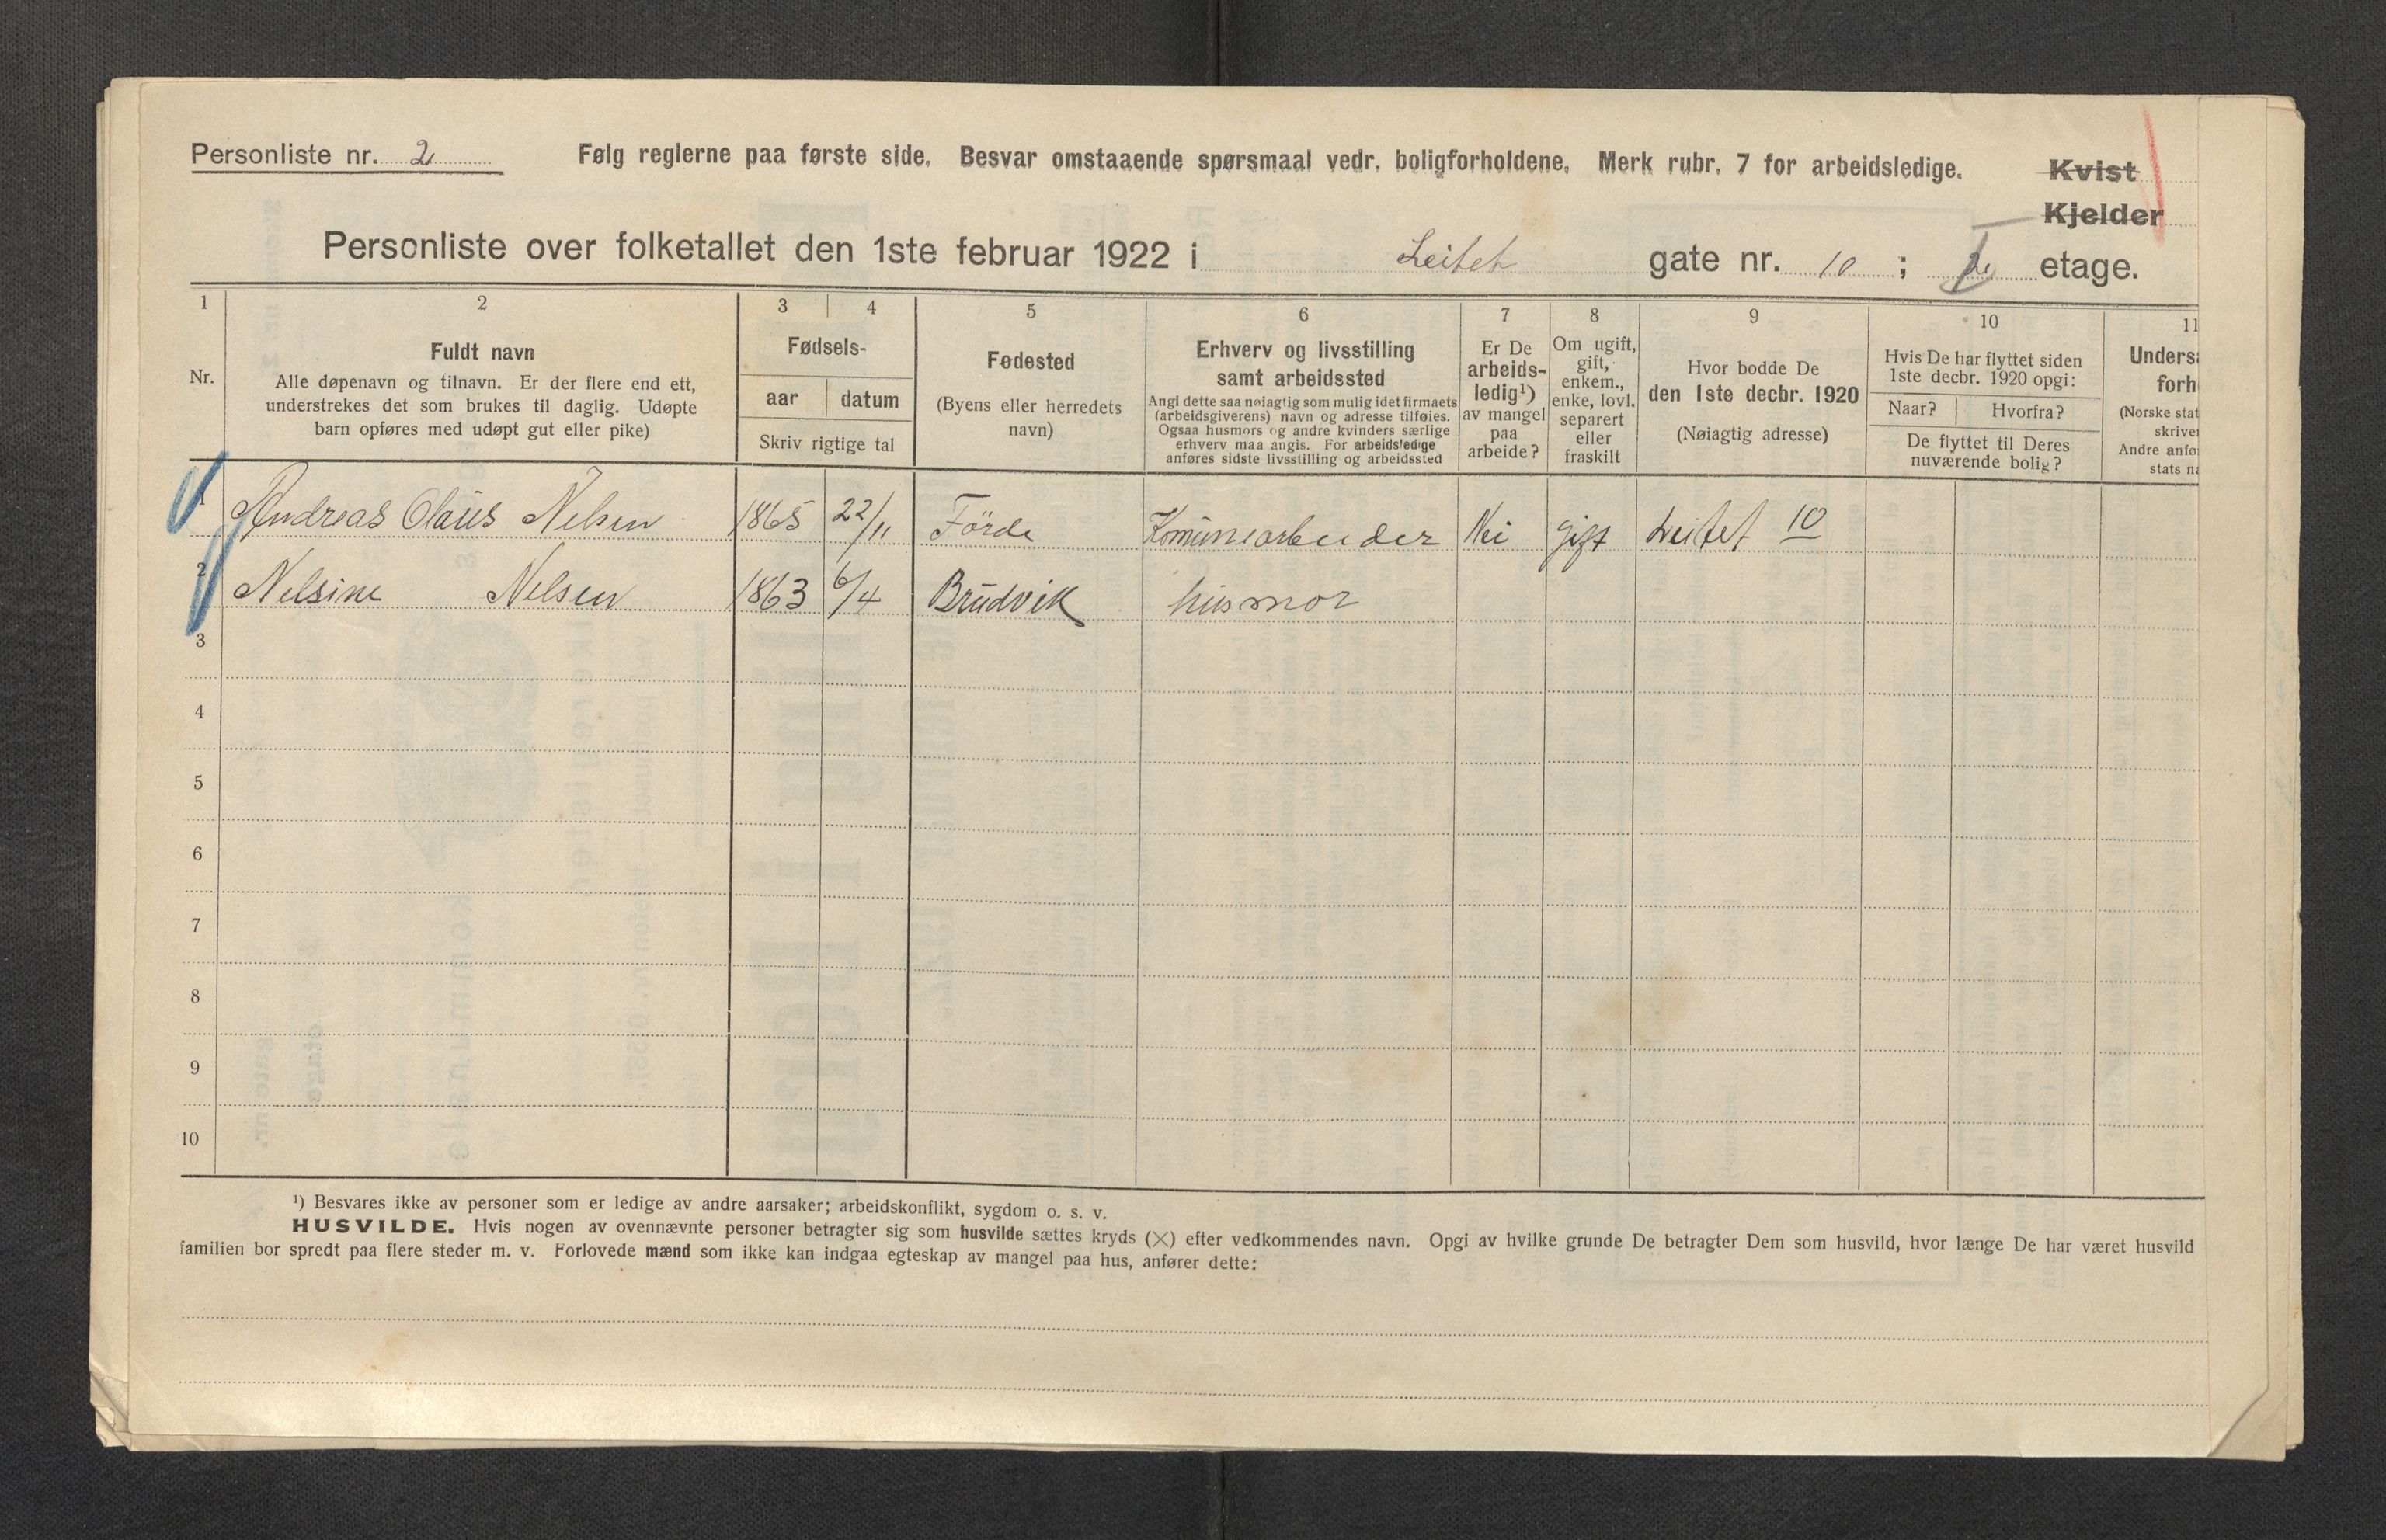 Personliste nr. 2 Følg reglerne paa første side. Besvar omstaaende spørsmaal vedr. boligforholdene. Merk rubr. 7 for arbeidsledige. Kvist
Kjelder
Personliste over folketallet den 1ste februar 1922 i Leitet gate nr. 10 ; etage.
1 2 3 4 5 6 7 8 9 10 11
Nr.
Fuldt navn
Alle døpenavn og tilnavn. Er der flere end ett,
understrekes det som brukes til daglig. Udøpte
barn opføres med udøpt gut eller pike)
Fødsels-
aar datum
Skriv rigtige tal
Fødested
(Byens eller herredets
navn)
Erhverv og livsstilling
samt arbeidssted
Angi dette saa nøiagtig som mulig idet firmaets
(arbeidsgiverens) navn og adresse tilføies.
Ogsaa husmors og andre kvinders særlige
erhverv maa angis. For arbeidsledige
anføres sidste livsstilling og arbeidssted
Er De
arbeids-
ledig¹)
av mangel
paa
arbeide?
Om ugift,
gift,
enkem.,
enke, lovl.
separert
eller
fraskilt
Hvor bodde De
den 1ste decbr. 1920
(Nøiagtig adresse)
Hvis De har flyttet siden
1ste decbr. 1920 opgi:
Naar? Hvorfra?
De flyttet til Deres
nuværende bolig?
Unders
forh
(Norske stat
skrive
Andre anfø
stats na
1 Andreas Olaus Nelsen 1865 22/11 Förde Komunearbeider Nei gift Leitet 10
2 Nelsine Nelsen 1863 6/4 Brudvik husmor
3
4
5
6
7
8
9
10
¹) Besvares ikke av personer som er ledige av andre aarsaker; arbeidskonflikt, sygdom o. s. v.
HUSVILDE. Hvis nogen av ovennævnte personer betragter sig som husvilde sættes kryds (×) efter vedkommendes navn. Opgi av hvilke grunde De betragter Dem som husvild, hvor længe De har været husvild
familien bor spredt paa flere steder m. v. Forlovede mænd som ikke kan indgaa egteskap av mangel paa hus, anfører dette: